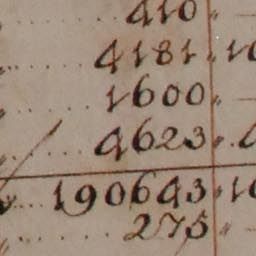 410 "
4181 " 10
1600 "
4623 "
190643 " 10
275 "